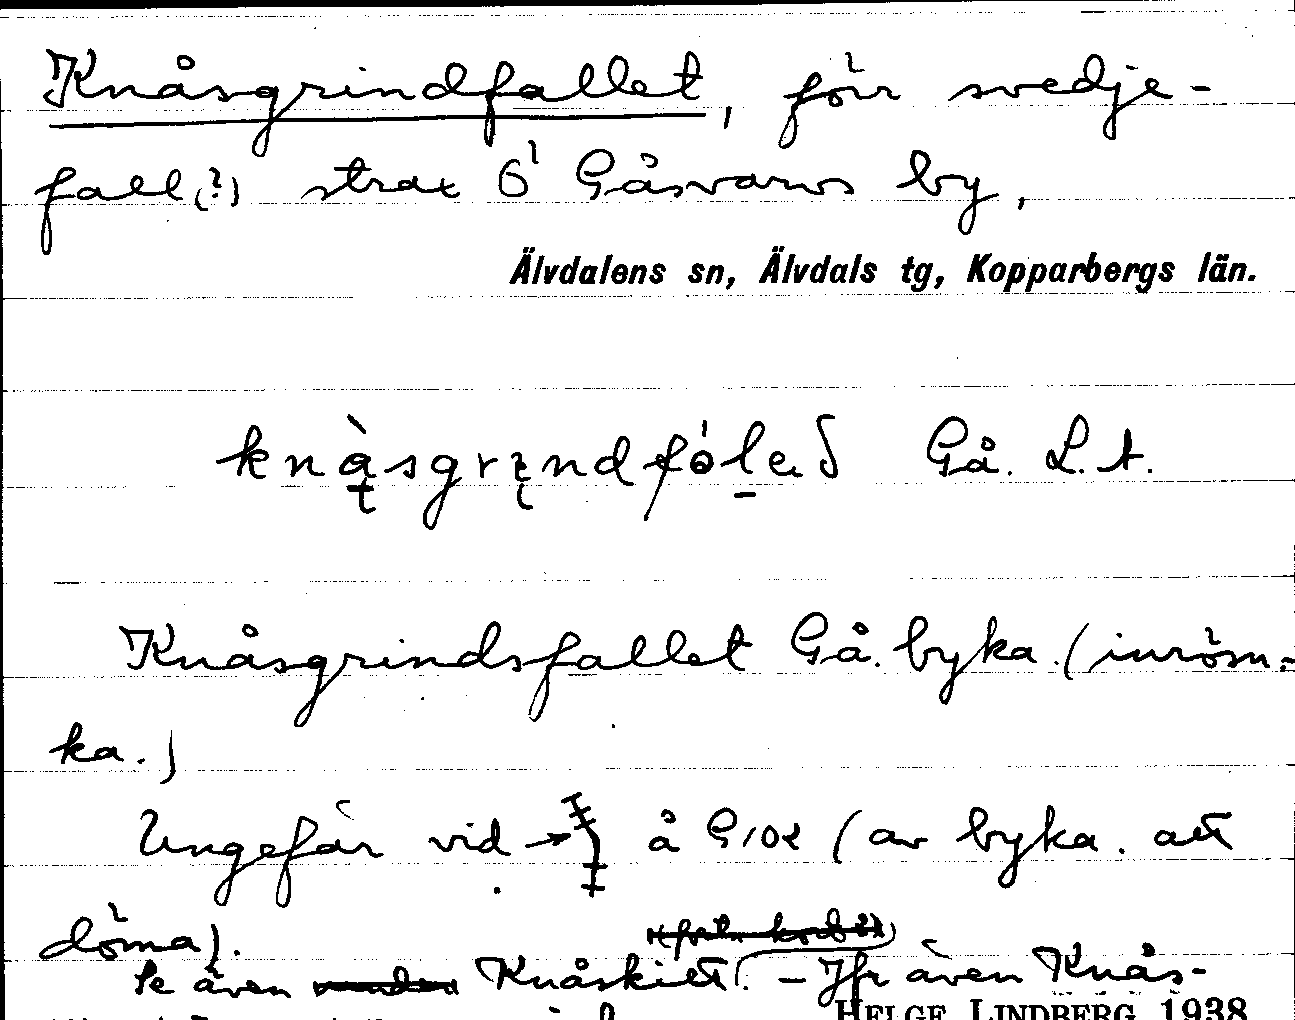 Knåsgrindfallet, förr svedje-
fall(?) strax Ö Gåsvarvs by,
Älvdalens sn, Älvdals tg, Kopparbergs län.
Gå. L.A.
Knåsgrindsfallet Gå. byka. (inröm.
ka.)
Ungefär vid → å G10 (av byka. att
döma).
Se även Knåskilt. – Jfr även Knås-
HELGE LINDBERG 1938